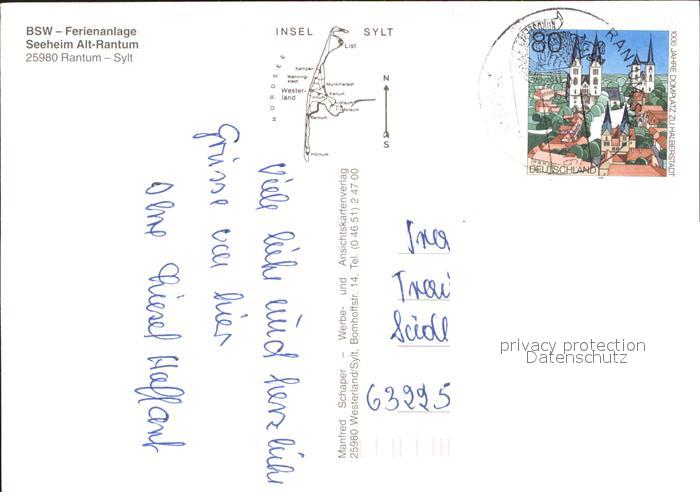 BSW – Ferienanlage
Seeheim Alt-Rantum
25980 Rantum – Sylt
INSEL SYLT
List
NORDSEE
Kampen
Wenning-
stedt
Munkmarsch
Wester-
land
Keitum
Archsum
Morsum
Rantum
Hörnum
N
S
80
DEUTSCHLAND
1000 JAHRE DOMPLATZ ZU HALBERSTADT
RANTUM
Viele liebe und herzliche
Grüsse von hier
Liesel
Manfred Schaper – Werbe- und Ansichtskartenverlag
25980 Westerland/Sylt, Bomhoffstr. 14, Tel. (0 46 51) 2 47 00
63225
privacy protection
Datenschutz